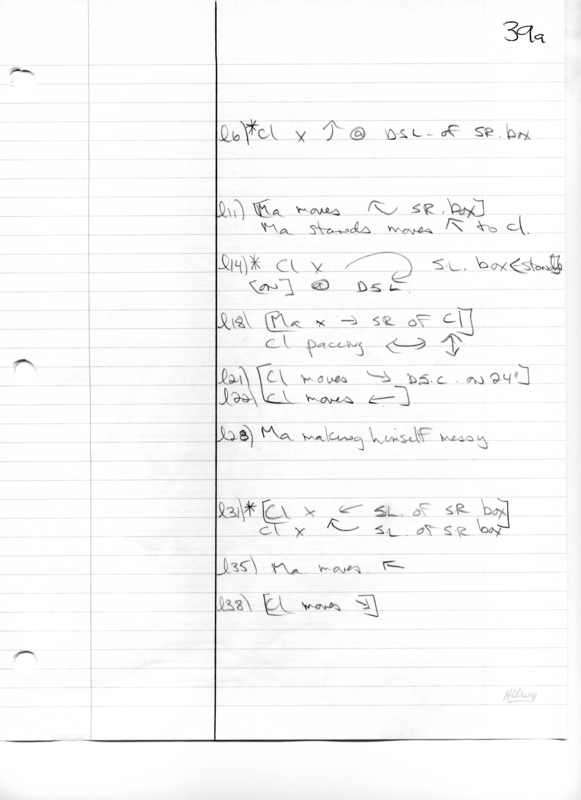 39a
l6)*Cl x ↑ @ D.S.L. of SR. box
l11) [Ma moves ↖ SR. box]
Ma stands moves ↖ to Cl.
l14)* Cl x ⤵ S.L. box
[on] @ D.S.L.
l18) [Ma x → SR of Cl]
Cl pacing ↔ ↕
l21) [Cl moves ↘ D.S.C. on 24"]
l22) [Cl moves ←]
l28) Ma making himself messy
l31)* [Cl x ↙ SL. of SR box]
Cl x ↖ S.L. of SR box
l35) Ma moves ↖
l38) [Cl moves ↘]
Hilroy